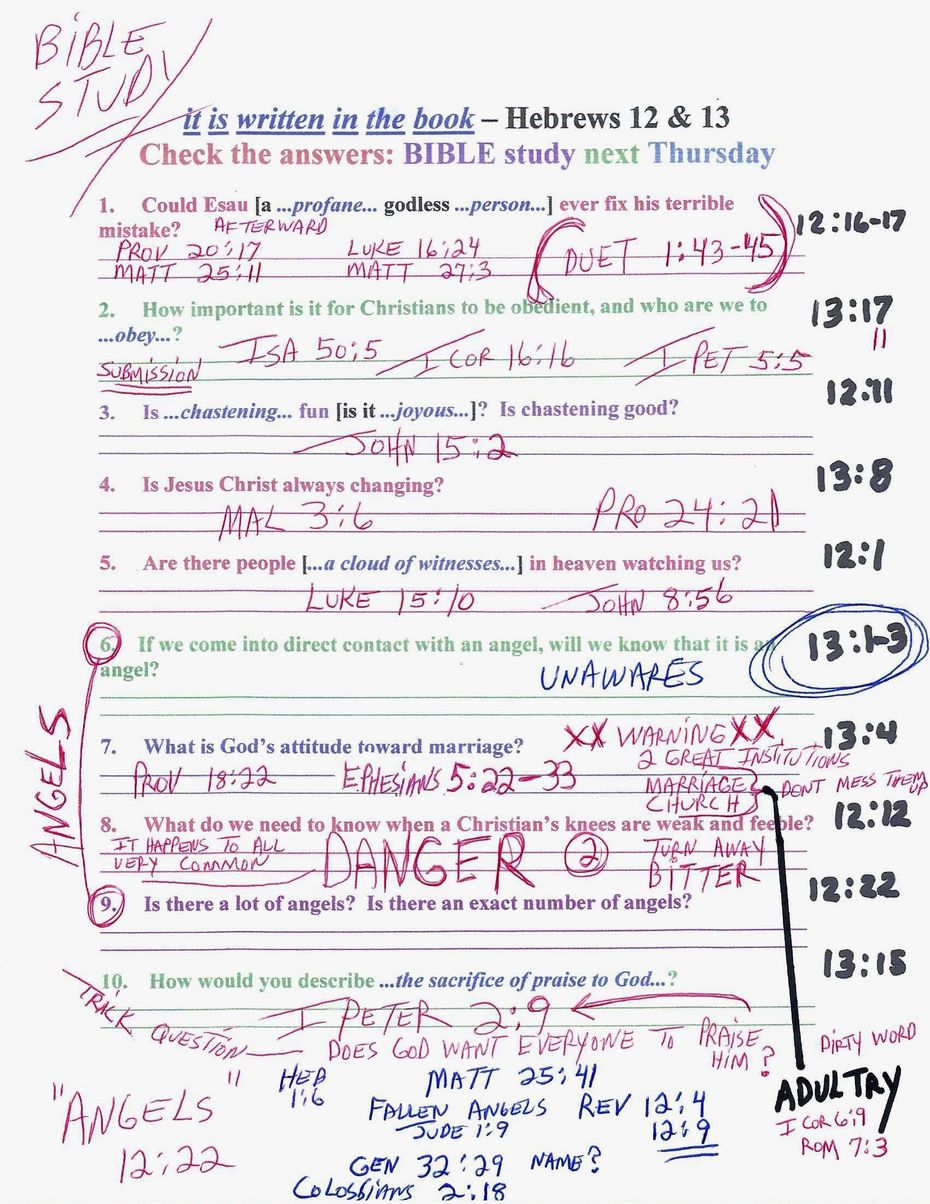 BIBLE
STUDY
it is written in the book – Hebrews 12 & 13
Check the answers: BIBLE study next Thursday
1. Could Esau [a ...profane... godless ...person...] ever fix his terrible
mistake? AFTERWARD
12:16-17
PROV 20:17 LUKE 16:24
MATT 25:11 MATT 27:3
DUET 1:43-45
2. How important is it for Christians to be obedient, and who are we to
...obey...?
13:17
11
SUBMISSION ISA 50:5 I COR 16:16 I PET 5:5
12:11
3. Is ...chastening... fun [is it ...joyous...]? Is chastening good?
JOHN 15:2
4. Is Jesus Christ always changing?
13:8
MAL 3:6 PRO 24:21
5. Are there people [...a cloud of witnesses...] in heaven watching us?
12:1
LUKE 15:10 JOHN 8:56
6. If we come into direct contact with an angel, will we know that it is an
angel?
13:1-3
UNAWARES
ANGELS
7. What is God's attitude toward marriage?
XX WARNING XX
13:4
2 GREAT INSTITUTIONS
PROV 18:22 EPHESIANS 5:22-33
MARRIAGE
CHURCH
DONT MESS THEM
UP
8. What do we need to know when a Christian's knees are weak and feeble?
12:12
IT HAPPENS TO ALL
VERY COMMON
DANGER 2
TURN AWAY
BITTER
9. Is there a lot of angels? Is there an exact number of angels?
12:22
10. How would you describe ...the sacrifice of praise to God...?
13:15
I PETER 2:9
TRACK
QUESTION DOES GOD WANT EVERYONE TO PRAISE
HIM?
DIRTY WORD
ADULTRY
I COR 6:9
ROM 7:3
"ANGELS"
12:22
HEB
1:6
MATT 25:41
FALLEN ANGELS REV 12:4
JUDE 1:9 12:9
GEN 32:29 NAME?
COLOSSIANS 2:18